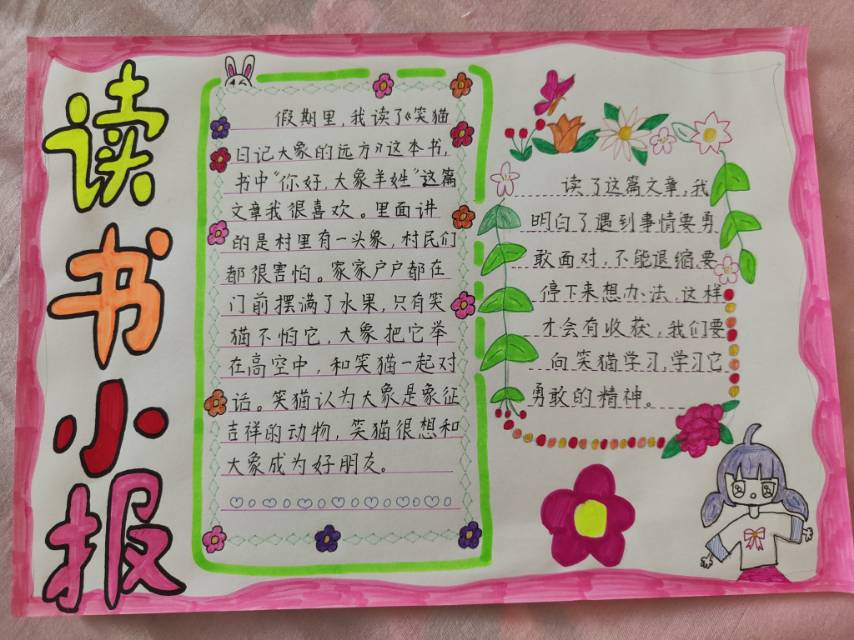 读书小报
假期里，我读了《笑猫
日记大象的远方》这本书，
书中“你好，大象羊姓”这篇
文章我很喜欢。里面讲
的是村里有一头象，村民们
都很害怕。家家户户都在
门前摆满了水果，只有笑
猫不怕它，大象把它举
在高空中，和笑猫一起对
话。笑猫认为大象是象征
吉祥的动物，笑猫很想和
大象成为好朋友。
读了这篇文章，我
明白了遇到事情要勇
敢面对，不能退缩，要
停下来想办法，这样
才会有收获，我们要
向笑猫学习，学习它
勇敢的精神。